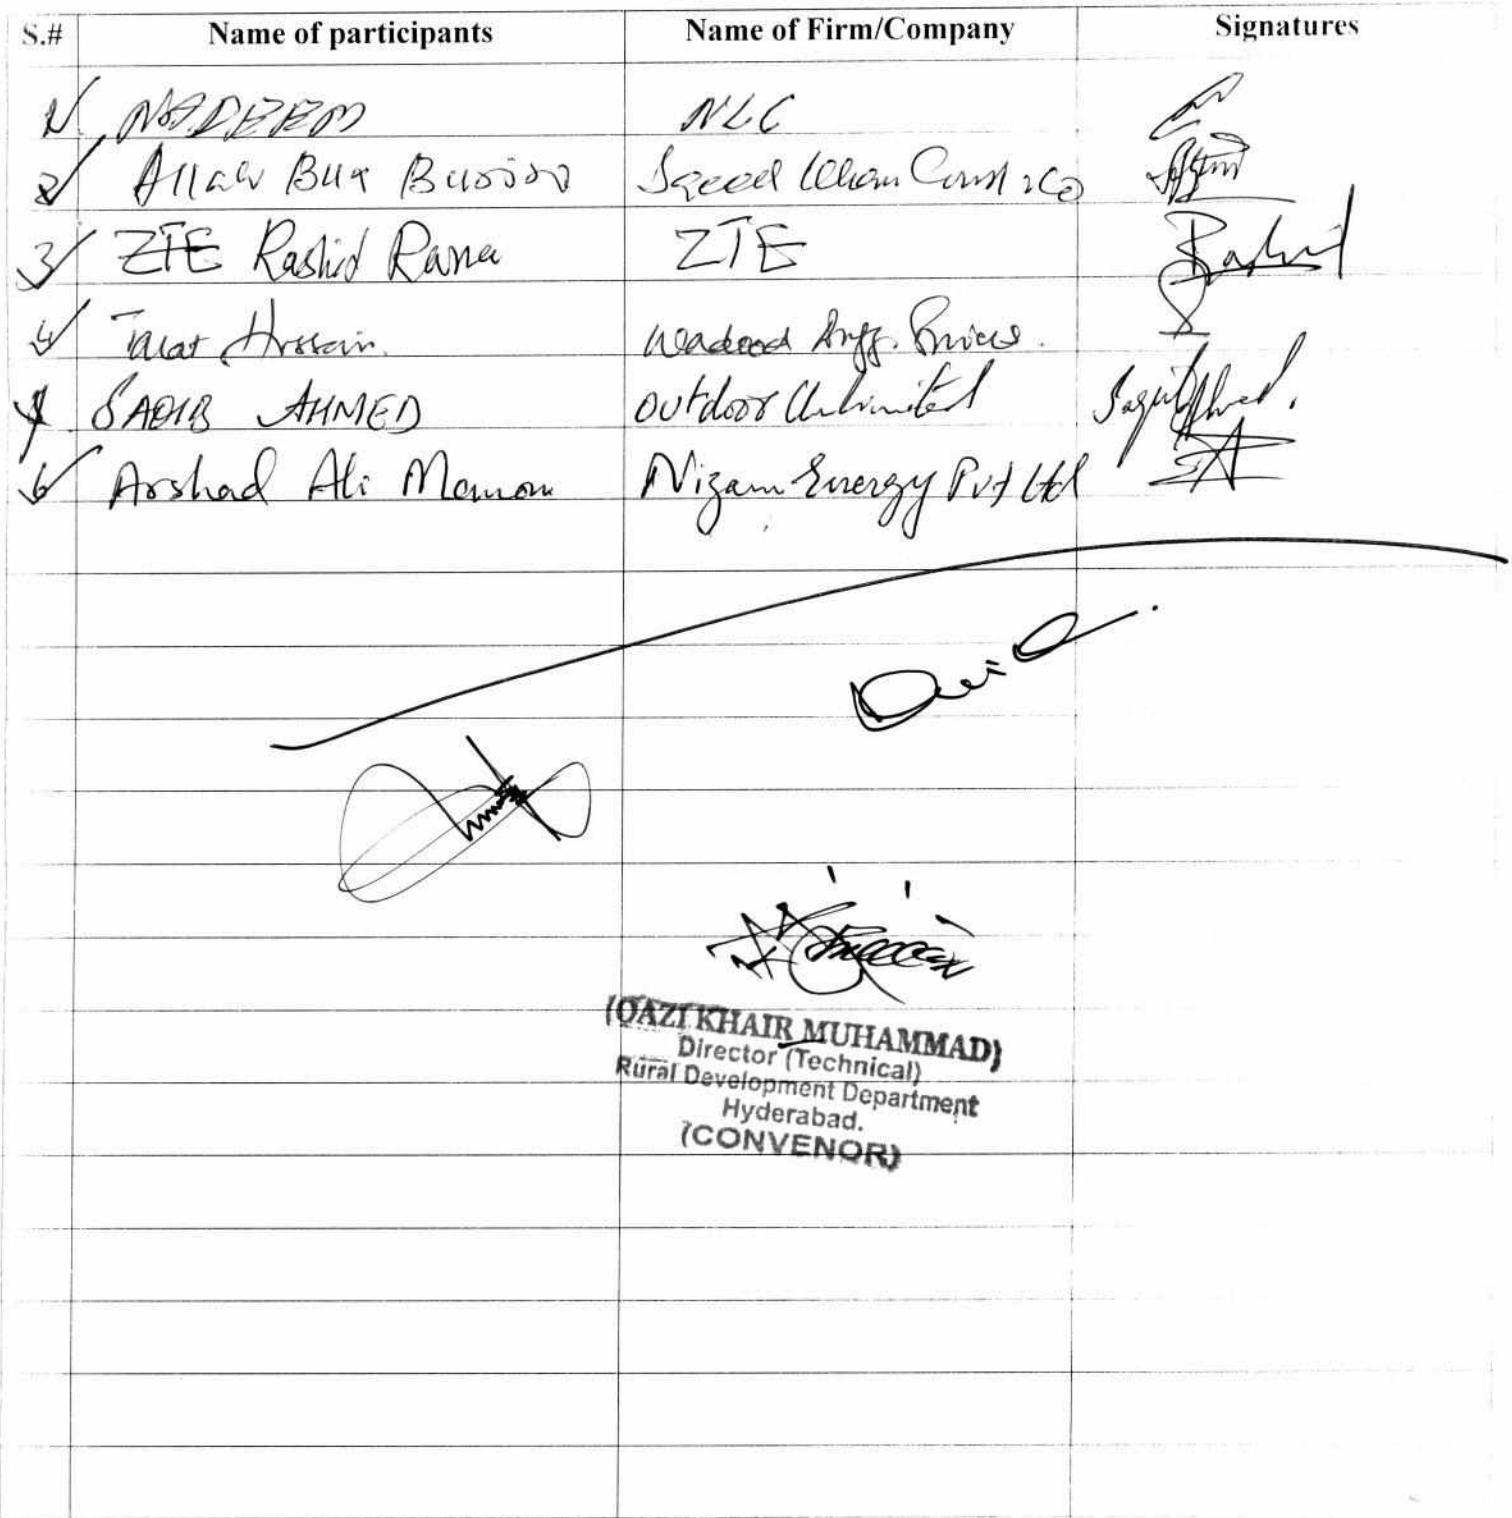 S.# Name of participants Name of Firm/Company Signatures
1 NADEEM NLC
2 Allah Bux Buriro Saeed Khan Const: Co
3 ZTE Rashid Rana ZTE Rashid
4 Talat Hussain. Wadood Engg. Services.
SAQIB AHMED Outdoor Unlimited Saqib Ahmed.
6 Arshad Ali Memon Nizam Energy Pvt Ltd
(QAZI KHAIR MUHAMMAD)
Director (Technical)
Rural Development Department
Hyderabad.
(CONVENOR)